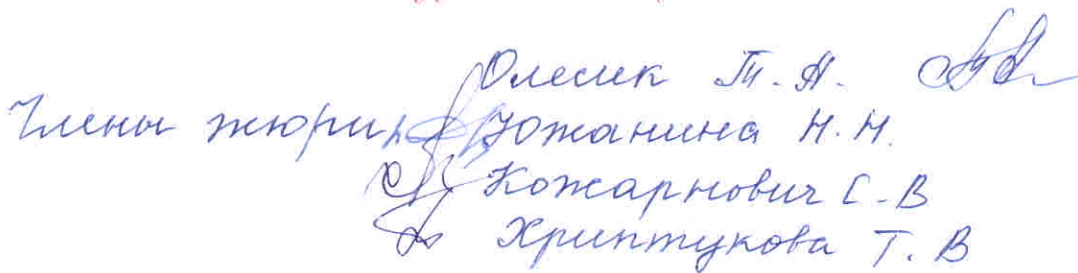 Олесик Т. А.
Члены жюри: Южанина Н. Н.
Кожарнович С. В
Хриптукова Т. В